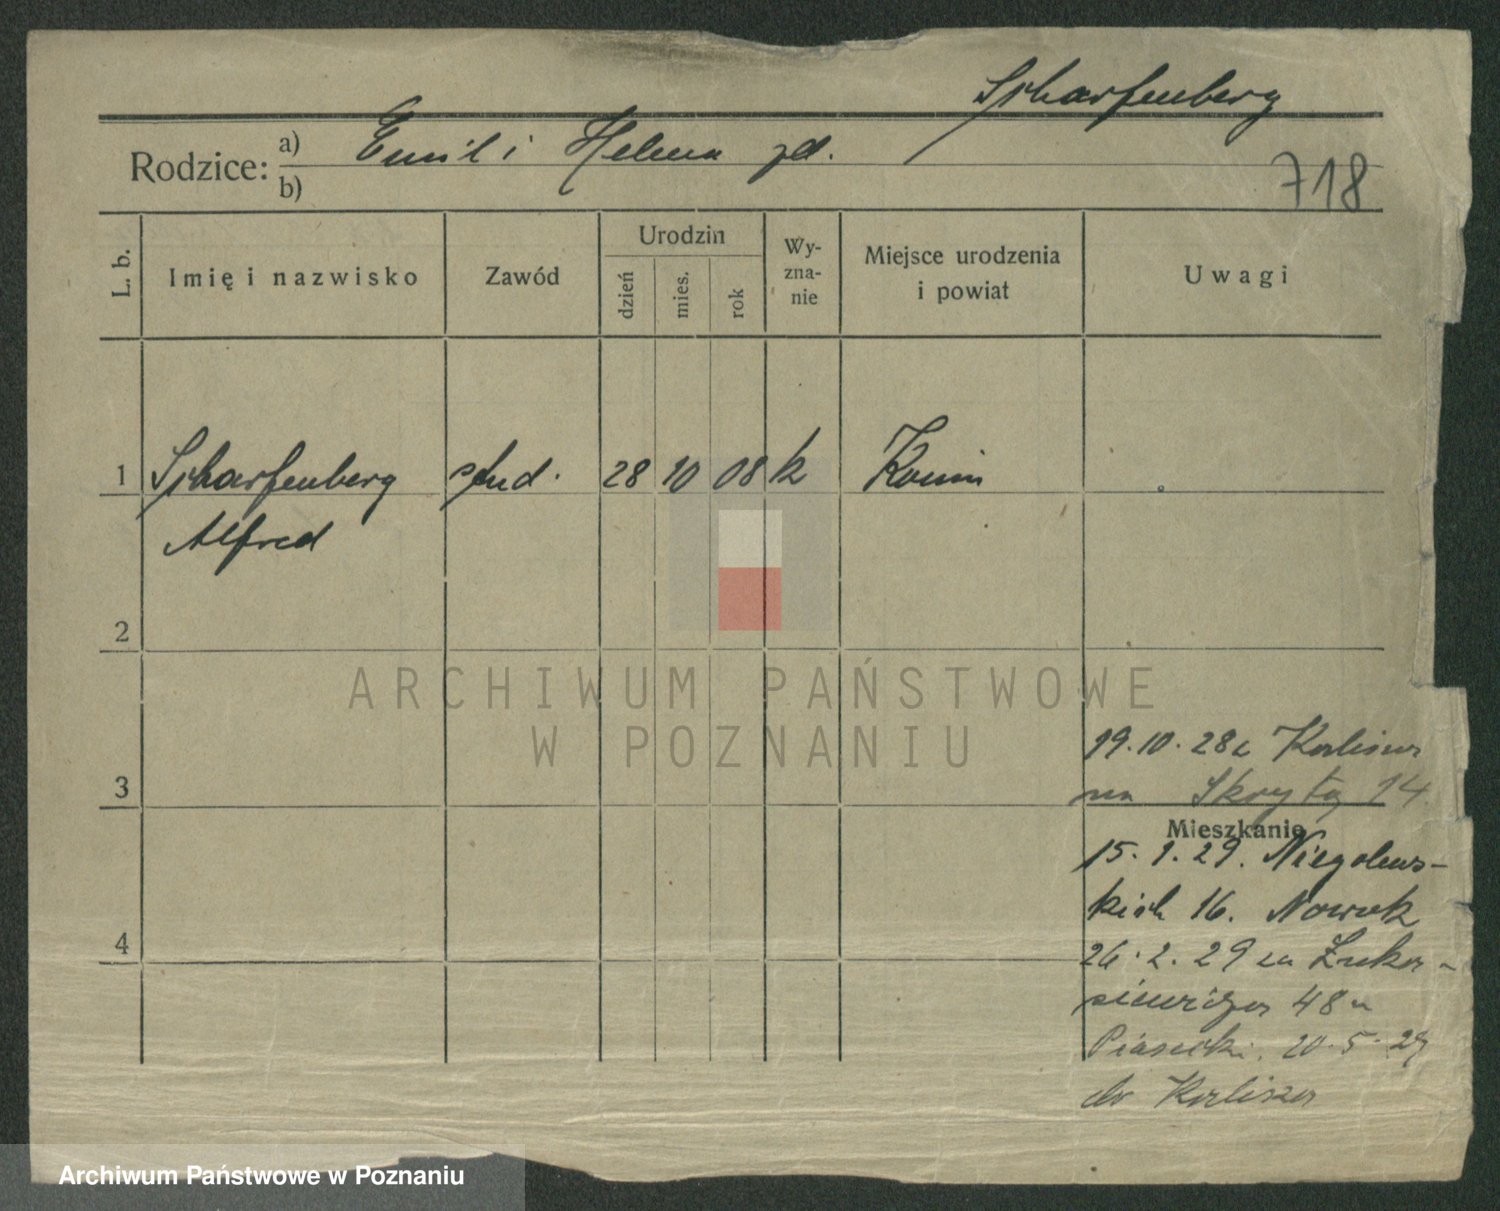 Scharfenberg
Rodzice: a) Emil i Helena zd.
b)
718
L. b. Imię i nazwisko Zawód Urodzin dzień mies. rok Wy-zna-nie Miejsce urodzenia i powiat Uwagi
1 Scharfenberg stud. 28 10 08 k Konin
Alfred
2
ARCHIWUM PAŃSTWOWE
W POZNANIU
19.10.28 z Kalisza
na Skrytą 14
3
Mieszkanie
15.1.29. Niegolews-
kich 16. Nowak
4
26.2.29 na Łuka-
siewicza 48 u
Piasecki. 20.5.29
do Kalisza
Archiwum Państwowe w Poznaniu